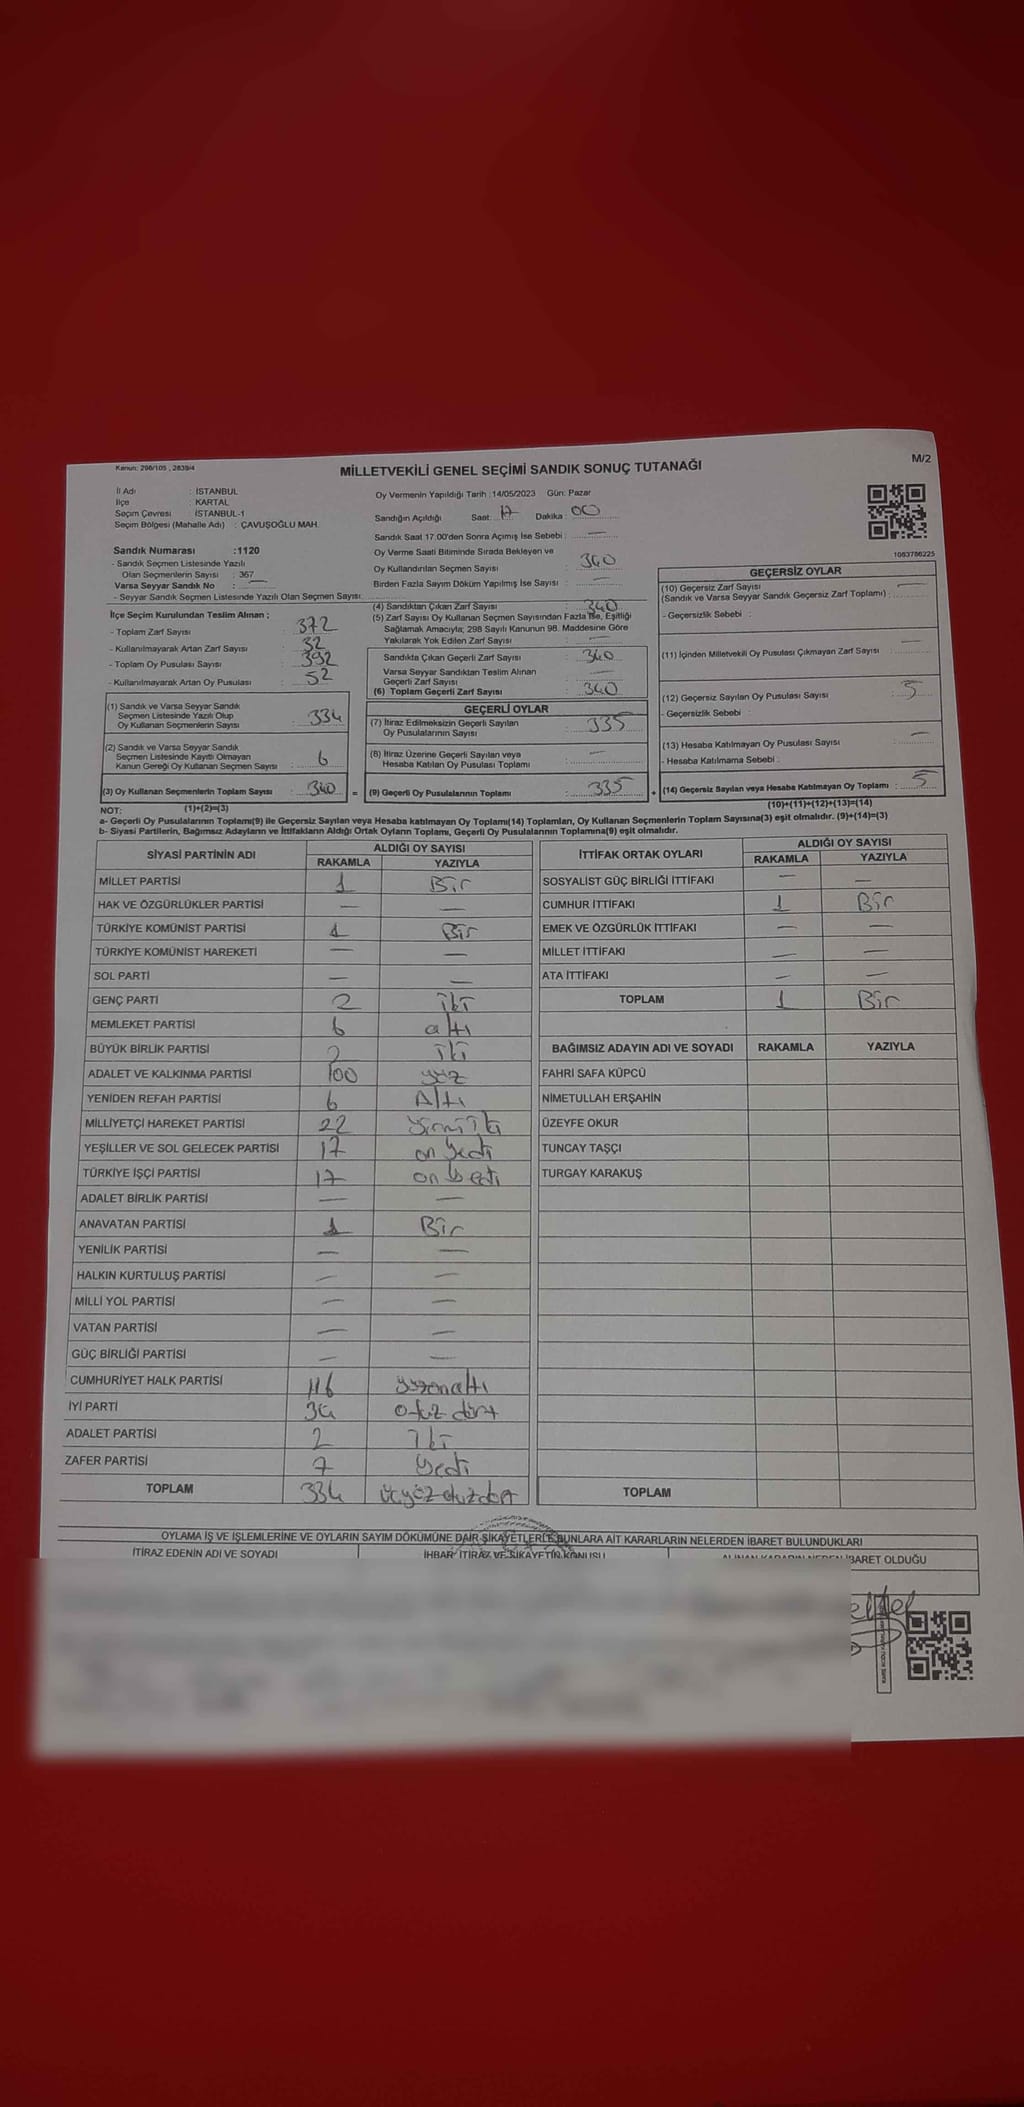 Kanun: 298/105 , 2839/4
M/2
MİLLETVEKİLİ GENEL SEÇİMİ SANDIK SONUÇ TUTANAĞI
İl Adı : İSTANBUL
İlçe : KARTAL
Seçim Çevresi : İSTANBUL-1
Seçim Bölgesi (Mahalle Adı) : ÇAVUŞOĞLU MAH.
Sandık Numarası :1120
- Sandık Seçmen Listesinde Yazılı
Olan Seçmenlerin Sayısı : 367
Varsa Seyyar Sandık No : —
- Seyyar Sandık Seçmen Listesinde Yazılı Olan Seçmen Sayısı
İlçe Seçim Kurulundan Teslim Alınan ;
- Toplam Zarf Sayısı : 372
- Kullanılmayarak Artan Zarf Sayısı : 32
- Toplam Oy Pusulası Sayısı : 392
- Kullanılmayarak Artan Oy Pusulası : 52
(1) Sandık ve Varsa Seyyar Sandık
Seçmen Listesinde Yazılı Olup
Oy Kullanan Seçmenlerin Sayısı : 334
(2) Sandık ve Varsa Seyyar Sandık
Seçmen Listesinde Kayıtlı Olmayan
Kanun Gereği Oy Kullanan Seçmen Sayısı : 6
(3) Oy Kullanan Seçmenlerin Toplam Sayısı : 340 =
Oy Vermenin Yapıldığı Tarih :14/05/2023 Gün: Pazar
Sandığın Açıldığı Saat: 17 Dakika : 00
Sandık Saat 17.00'den Sonra Açımış İse Sebebi : —
Oy Verme Saati Bitiminde Sırada Bekleyen ve
Oy Kullandırılan Seçmen Sayısı : 340
Birden Fazla Sayım Döküm Yapılmış İse Sayısı : —
(4) Sandıktan Çıkan Zarf Sayısı : 340
(5) Zarf Sayısı Oy Kullanan Seçmen Sayısından Fazla İse, Eşitliği
Sağlamak Amacıyla; 298 Sayılı Kanunun 98. Maddesine Göre
Yakılarak Yok Edilen Zarf Sayısı : —
Sandıkta Çıkan Geçerli Zarf Sayısı : 340
Varsa Seyyar Sandıktan Teslim Alınan
Geçerli Zarf Sayısı : —
(6) Toplam Geçerli Zarf Sayısı : 340
GEÇERLİ OYLAR
(7) İtiraz Edilmeksizin Geçerli Sayılan
Oy Pusulalarının Sayısı : 335
(8) İtiraz Üzerine Geçerli Sayılan veya
Hesaba Katılan Oy Pusulası Toplamı : —
(9) Geçerli Oy Pusulalarının Toplamı : 335 +
1063786225
GEÇERSİZ OYLAR
(10) Geçersiz Zarf Sayısı
(Sandık ve Varsa Seyyar Sandık Geçersiz Zarf Toplamı) : —
- Geçersizlik Sebebi :
(11) İçinden Milletvekili Oy Pusulası Çıkmayan Zarf Sayısı : —
(12) Geçersiz Sayılan Oy Pusulası Sayısı : 5
- Geçersizlik Sebebi :
(13) Hesaba Katılmayan Oy Pusulası Sayısı : —
- Hesaba Katılmama Sebebi :
(14) Geçersiz Sayılan veya Hesaba Katılmayan Oy Toplamı : 5
NOT: (1)+(2)=(3)
(10)+(11)+(12)+(13)=(14)
a- Geçerli Oy Pusulalarının Toplamı(9) ile Geçersiz Sayılan veya Hesaba katılmayan Oy Toplamı(14) Toplamları, Oy Kullanan Seçmenlerin Toplam Sayısına(3) eşit olmalıdır. (9)+(14)=(3)
b- Siyasi Partilerin, Bağımsız Adayların ve İttifakların Aldığı Ortak Oyların Toplamı, Geçerli Oy Pusulalarının Toplamına(9) eşit olmalıdır.
SİYASİ PARTİNİN ADI ALDIĞI OY SAYISI
RAKAMLA YAZIYLA
MİLLET PARTİSİ 1 Bir
HAK VE ÖZGÜRLÜKLER PARTİSİ — —
TÜRKİYE KOMÜNİST PARTİSİ 1 Bir
TÜRKİYE KOMÜNİST HAREKETİ — —
SOL PARTİ — —
GENÇ PARTİ 2 iki
MEMLEKET PARTİSİ 6 altı
BÜYÜK BİRLİK PARTİSİ 2 iki
ADALET VE KALKINMA PARTİSİ 100 yüz
YENİDEN REFAH PARTİSİ 6 Altı
MİLLİYETÇİ HAREKET PARTİSİ 22 yirmi iki
YEŞİLLER VE SOL GELECEK PARTİSİ 17 on yedi
TÜRKİYE İŞÇİ PARTİSİ 17 on yedi
ADALET BİRLİK PARTİSİ — —
ANAVATAN PARTİSİ 1 Bir
YENİLİK PARTİSİ — —
HALKIN KURTULUŞ PARTİSİ — —
MİLLİ YOL PARTİSİ — —
VATAN PARTİSİ — —
GÜÇ BİRLİĞİ PARTİSİ — —
CUMHURİYET HALK PARTİSİ 116 yüzonaltı
İYİ PARTİ 34 otuz dört
ADALET PARTİSİ 2 iki
ZAFER PARTİSİ 7 yedi
TOPLAM 334 üçyüz otuzdört
İTTİFAK ORTAK OYLARI ALDIĞI OY SAYISI
RAKAMLA YAZIYLA
SOSYALİST GÜÇ BİRLİĞİ İTTİFAKI — —
CUMHUR İTTİFAKI 1 Bir
EMEK VE ÖZGÜRLÜK İTTİFAKI — —
MİLLET İTTİFAKI — —
ATA İTTİFAKI — —
TOPLAM 1 Bir
BAĞIMSIZ ADAYIN ADI VE SOYADI RAKAMLA YAZIYLA
FAHRİ SAFA KÜPCÜ
NİMETULLAH ERŞAHİN
ÜZEYFE OKUR
TUNCAY TAŞÇI
TURGAY KARAKUŞ
TOPLAM
OYLAMA İŞ VE İŞLEMLERİNE VE OYLARIN SAYIM DÖKÜMÜNE DAİR ŞİKAYETLERLE BUNLARA AİT KARARLARIN NELERDEN İBARET BULUNDUKLARI
İTİRAZ EDENİN ADI VE SOYADI
İHBAR, İTİRAZ VE ŞİKAYETİN KONUSU
ALINAN KARARIN NEDEN İBARET OLDUĞU